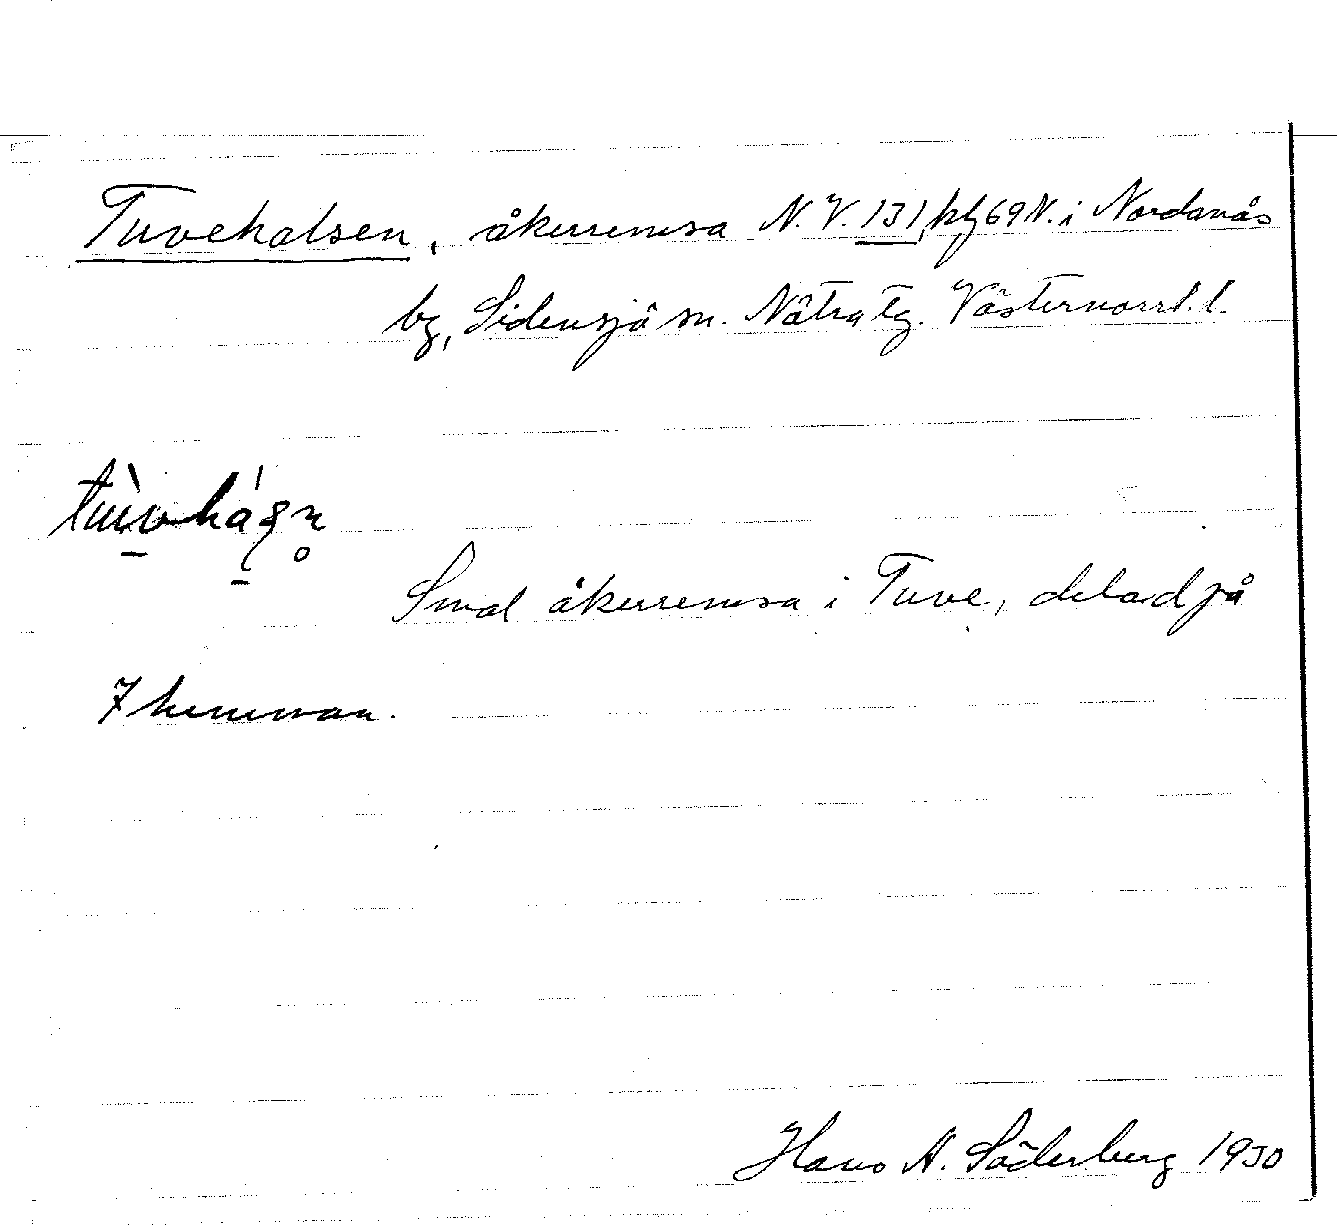 Tuvehalsen, åkerremsa N.V. 131, hfg 69 N. i Nordanås
by, Sidensjö sn. Nätra tg. Västernorrl. l.
Smal åkerremsa i Tuve, delad på
7 hemman.
Hans A. Söderberg 1930